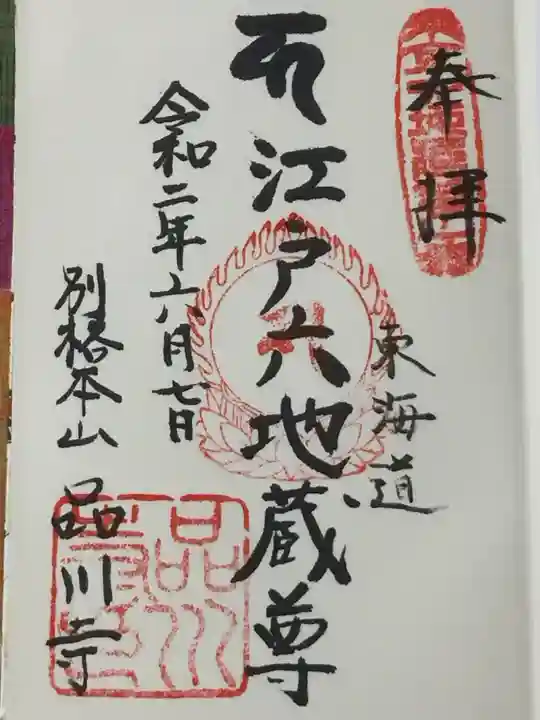 奉拝
東海道
江戸六地蔵尊
令和二年六月七日
別格本山 品川寺
品川